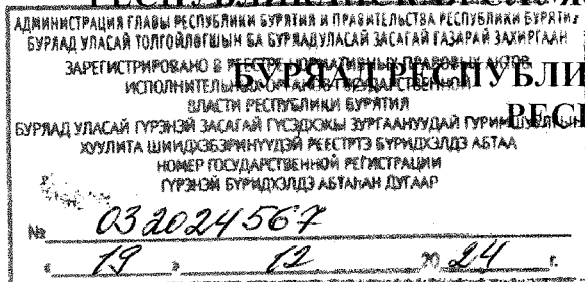 АДМИНИСТРАЦИЯ ГЛАВЫ РЕСПУБЛИКИ БУРЯТИЯ И ПРАВИТЕЛЬСТВА РЕСПУБЛИКИ БУРЯТИЯ
БУРЯАД УЛАСАЙ ТОЛГОЙЛОГШЫН БА БУРЯАД УЛАСАЙ ЗАСАГАЙ ГАЗАРАЙ ЗАХИРГААН
ЗАРЕГИСТРИРОВАНО В РЕЕСТРЕ НОРМАТИВНЫХ ПРАВОВЫХ АКТОВ
ИСПОЛНИТЕЛЬНЫХ ОРГАНОВ ГОСУДАРСТВЕННОЙ
БУРЯАД РЕСПУБЛИ
ВЛАСТИ РЕСПУБЛИКИ БУРЯТИЯ
РЕСП
БУРЯАД УЛАСАЙ ГҮРЭНЭЙ ЗАСАГАЙ ГҮЙСЭДХЭХЫ ЗУРГААНУУДАЙ ГУРИМШУУЛЫН
ХУУЛИТА ШИИДХЭБЭРИНҮҮДЭЙ РЕЕСТРТЭ БҮРИДХЭЛДЭ АБТАА
НОМЕР ГОСУДАРСТВЕННОЙ РЕГИСТРАЦИИ
ГҮРЭНЭЙ БҮРИДХЭЛДЭ АБТАҺАН ДУГААР
№ 032024567
« 19 » 12 20 24 г.